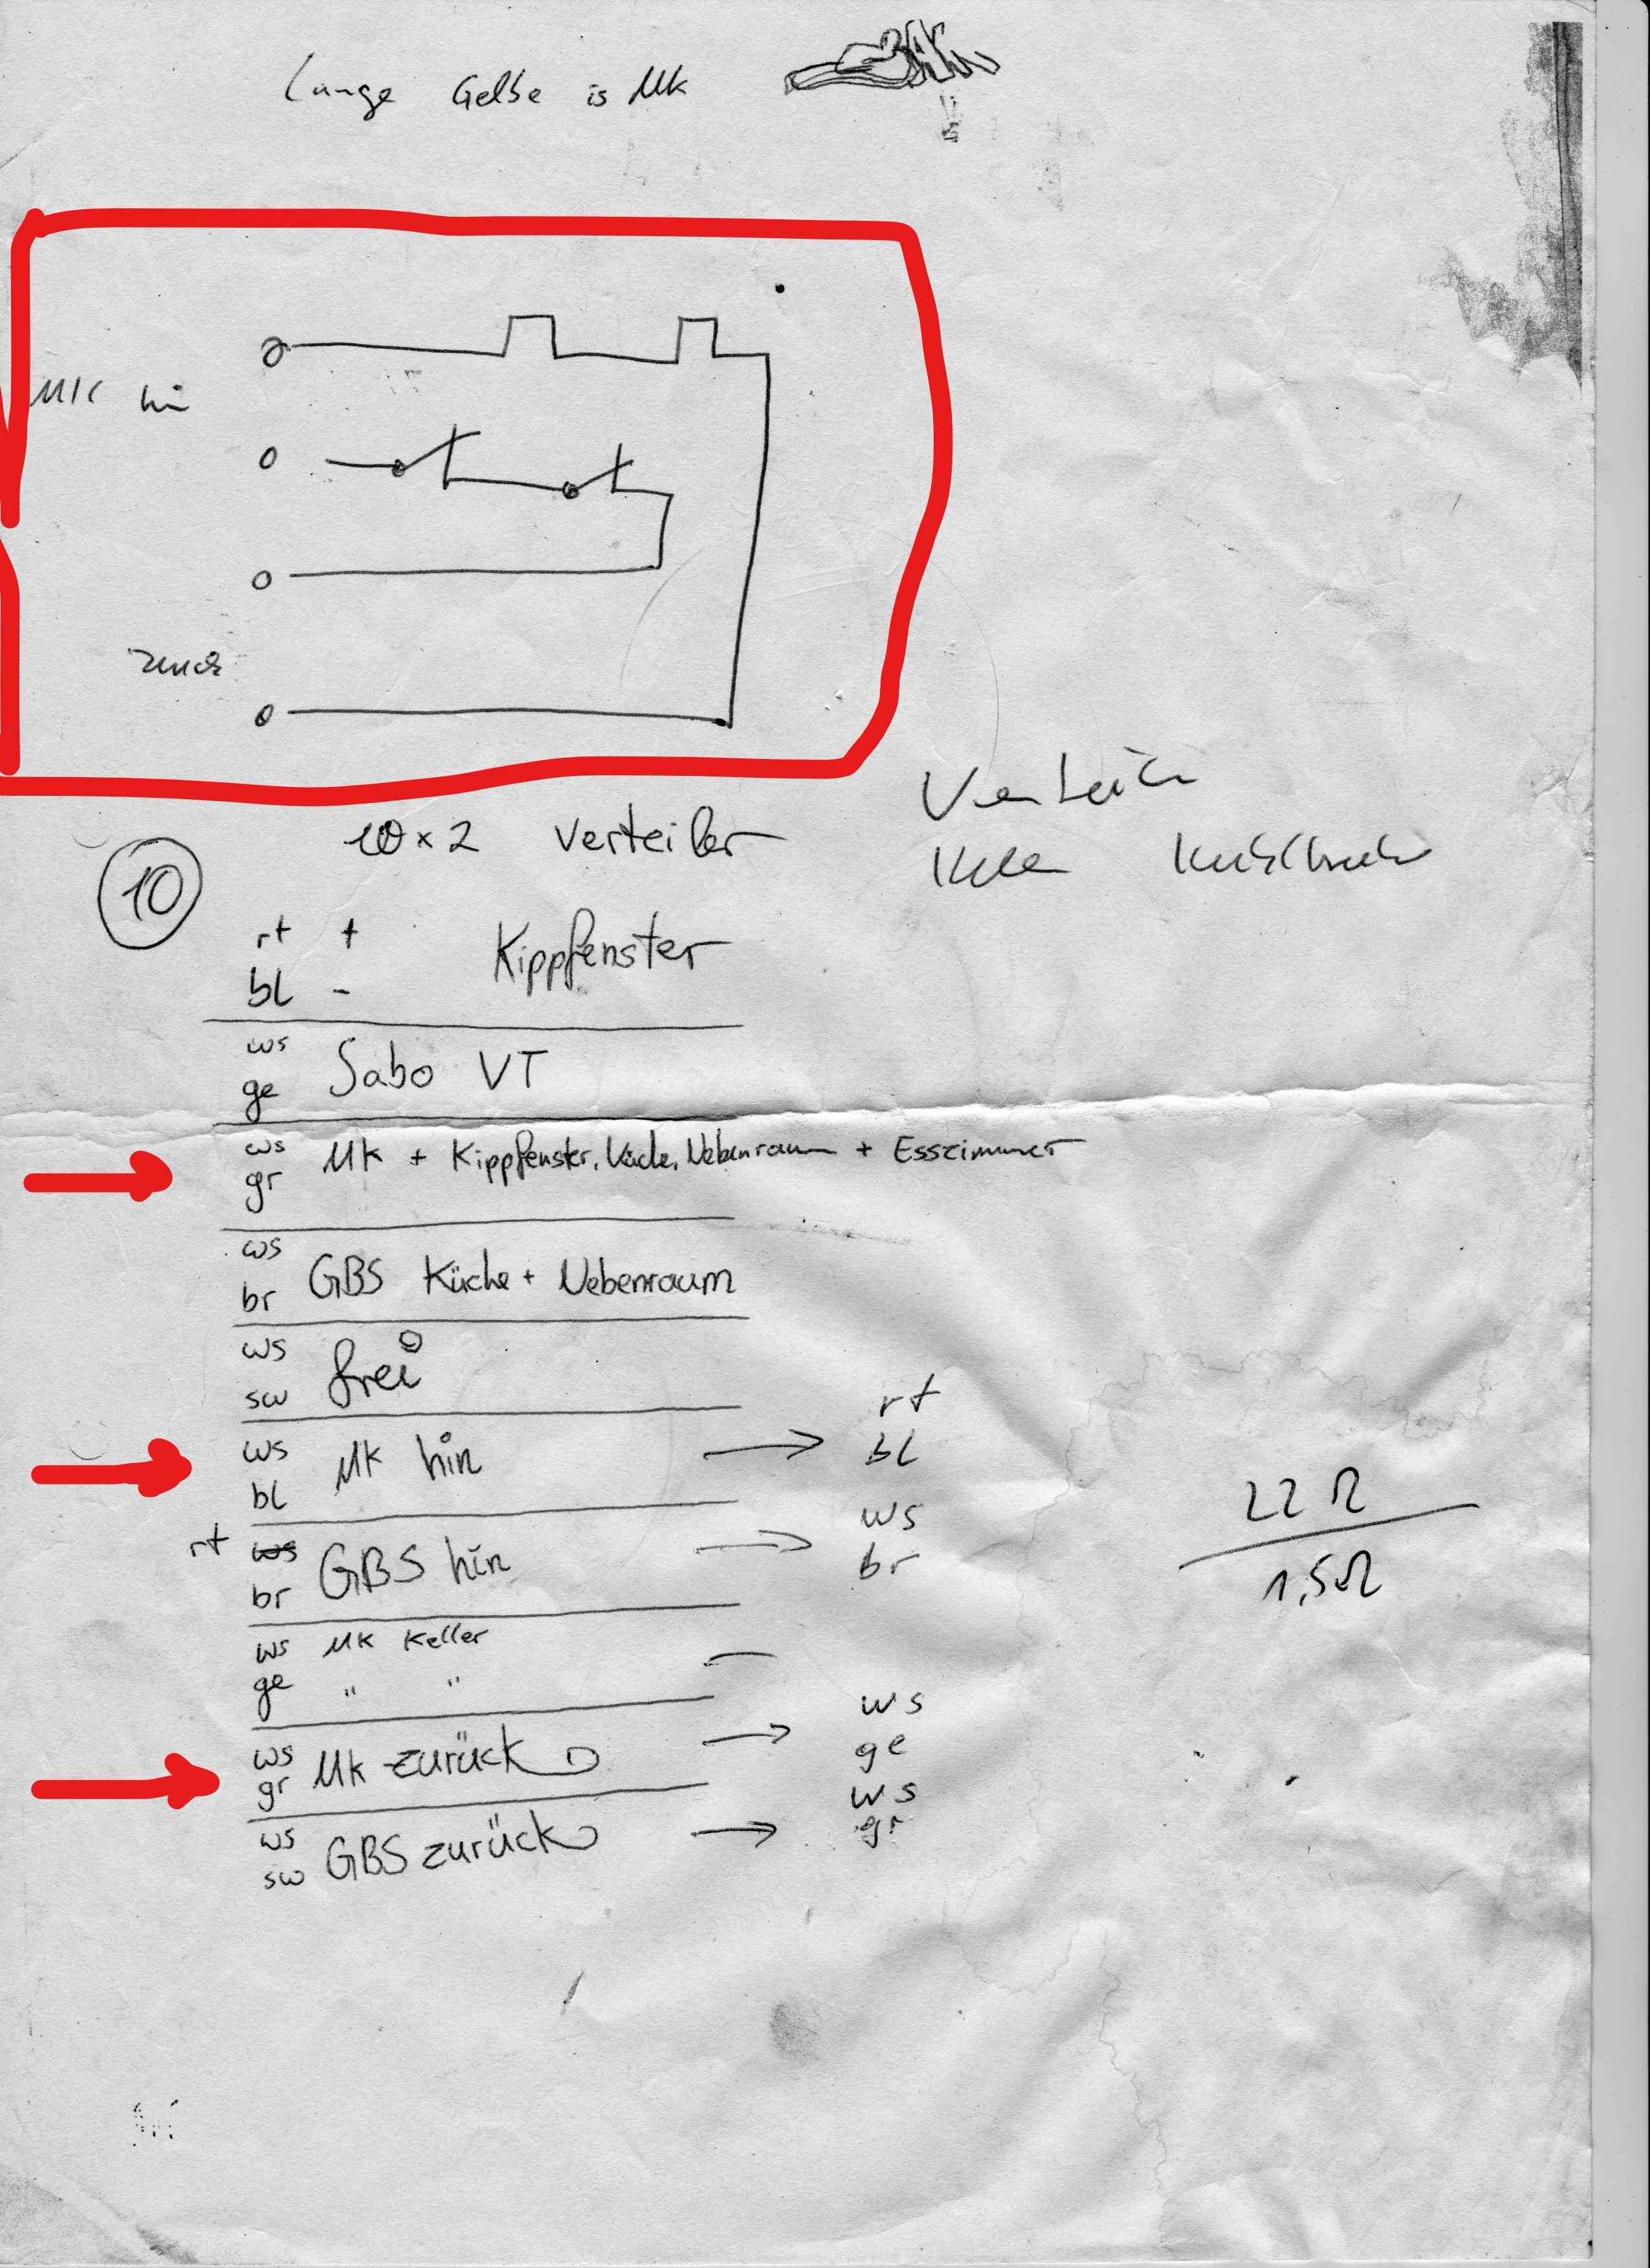 Lange Gelbe is MK
MK hin
zurück
10 x 2 Verteiler
10
rt +
bl - Kippfenster
ws
ge Sabo VT
ws
gr MK + Kippfenster, Küche, Nebenraum + Esszimmer
ws
br GBS Küche + Nebenraum
ws
sw frei
ws
bl MK hin → rt bl
rt ws
br GBS hin → ws br
22 Ω
1,5 Ω
ws MK Keller
ge " "
ws
gr MK zurück → ws ge
ws
sw GBS zurück → ws gr